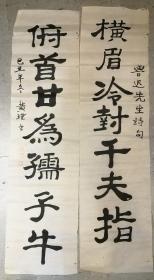 橫眉冷對千夫指
魯迅先生詩句
俯首甘為孺子牛
己丑年冬